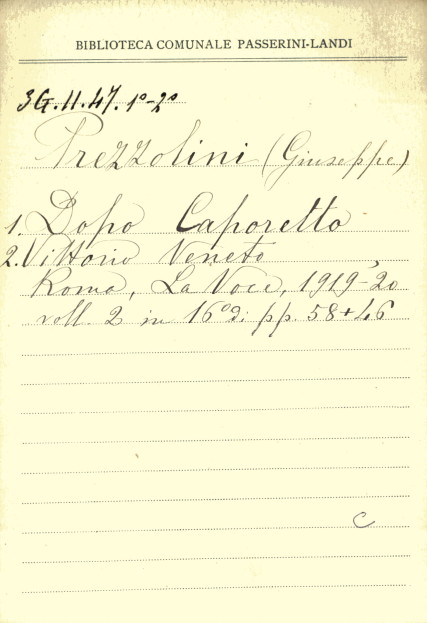 BIBLIOTECA COMUNALE PASSERINI-LANDI
3G.II.47. 1º-2º
Prezzolini (Giuseppe)
1. Dopo Caporetto
2. Vittorio Veneto,
Roma, La Voce, 1919-20
voll. 2 in 16º di pp. 58+46
C